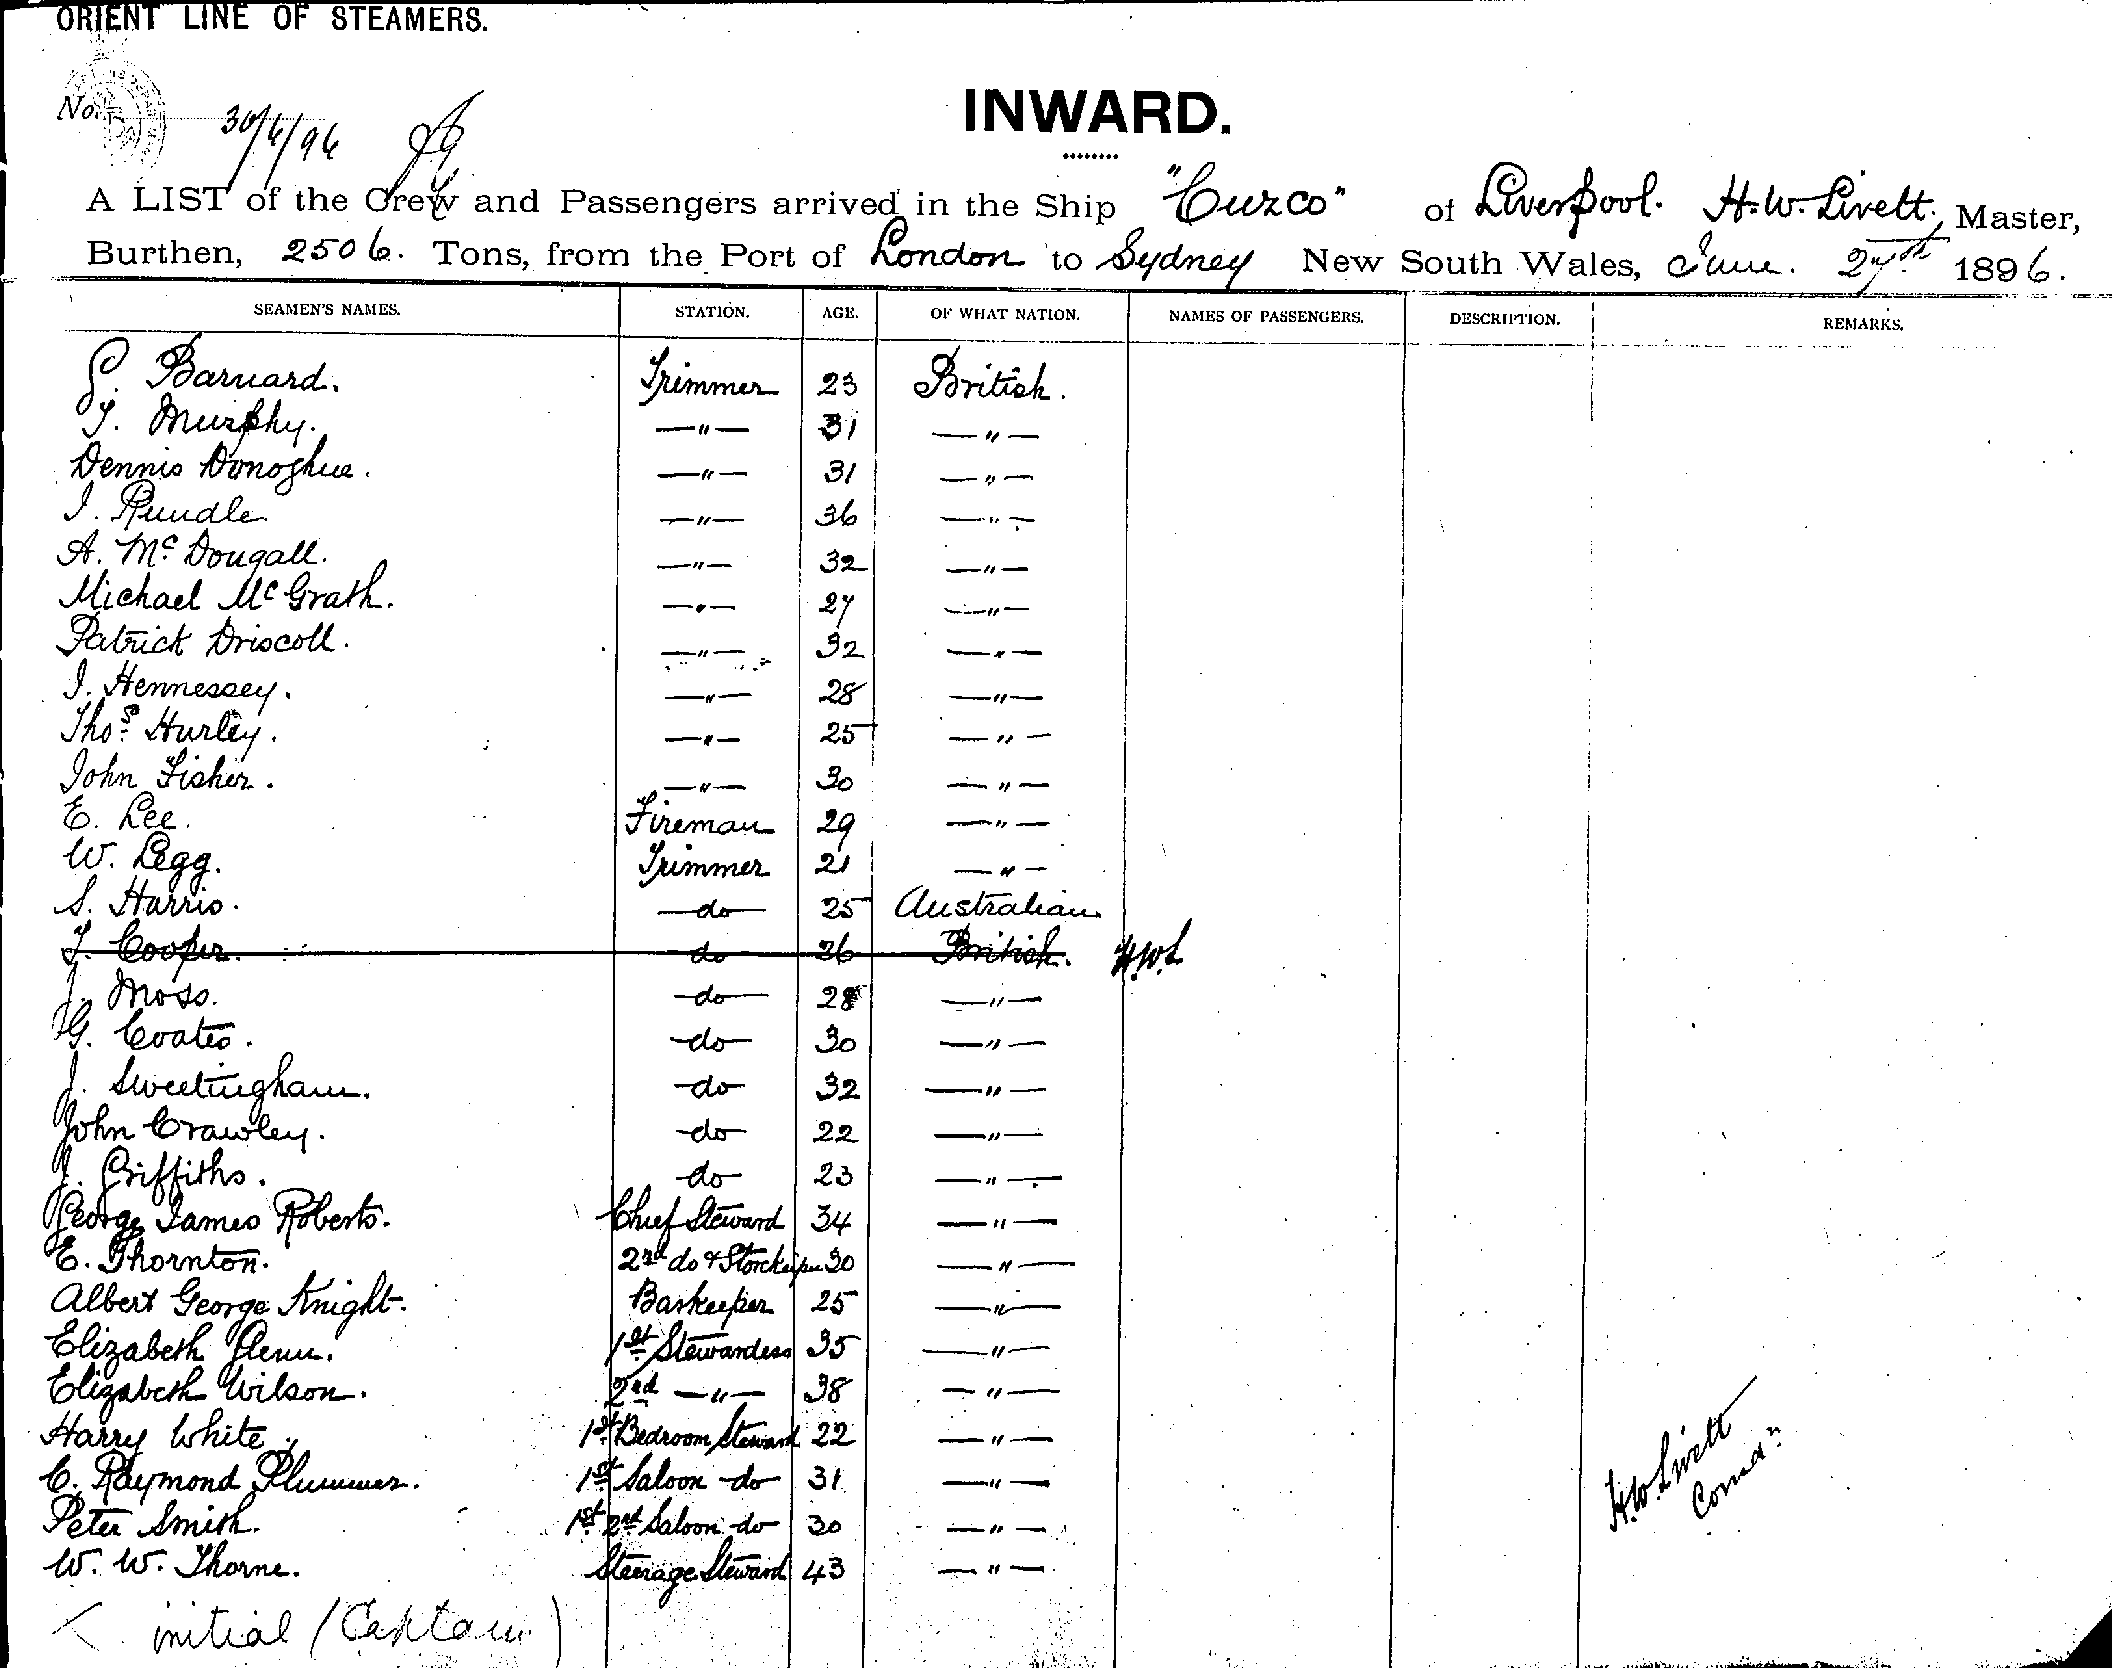 ORIENT LINE OF STEAMERS.
No.
30/6/96
INWARD.
A LIST of the Crew and Passengers arrived in the Ship "Cuzco" of Liverpool. H.W. Livett, Master,
Burthen, 2506. Tons, from the Port of London to Sydney New South Wales, June. 27th 1896.
SEAMEN'S NAMES. STATION. AGE. OF WHAT NATION. NAMES OF PASSENGERS. DESCRIPTION. REMARKS.
G. Barnard. Trimmer 23 British.
T. Murphy. —"— 31 —"—
Dennis Donoghue. —"— 31 —"—
J. Rundle —"— 36 —"—
A. McDougall. —"— 32 —"—
Michael McGrath. —"— 27 —"—
Patrick Driscoll. —"— 32 —"—
J. Hennessey. —"— 28 —"—
Thos. Hurley. —"— 25 —"—
John Fisher. —"— 30 —"—
E. Lee. Fireman 29 —"—
W. Legg. Trimmer 21 —"—
S. Harris. do 25 Australian
T. Cooper. do 26 British. H.W.L
J. Moss. do 28 —"—
G. Coates. do 30 —"—
J. Sweetingham. do 32 —"—
John Crawley. do 22 —"—
J. Griffiths. do 23 —"—
George James Roberts. Chief Steward 34 —"—
E. Thornton. 2nd do & Storekeeper 30 —"—
Albert George Knight. Barkeeper 25 —"—
Elizabeth Glenn. 1st Stewardess 35 —"—
Elizabeth Wilson. 2nd —"— 38 —"—
Harry White. 1st Bedroom Steward 22 —"—
C. Raymond Plummer. 1st Saloon do 31 —"—
Peter Smith. 1st 2nd Saloon do 30 —"—
W. W. Thorne. Steerage Steward 43 —"—
H.W. Livett
Comdr
initial (Captain)